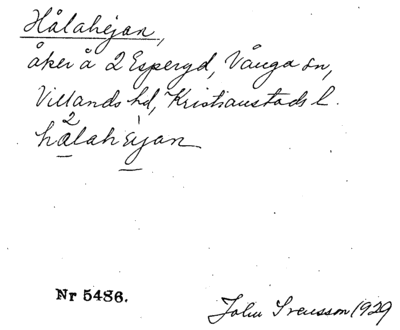 Hålahejan,
åker å 2 Espergd, Vånga sn,
Villands hd, Kristianstads l.
hålahɛijan
2
Nr 5486.
John Svensson 1929